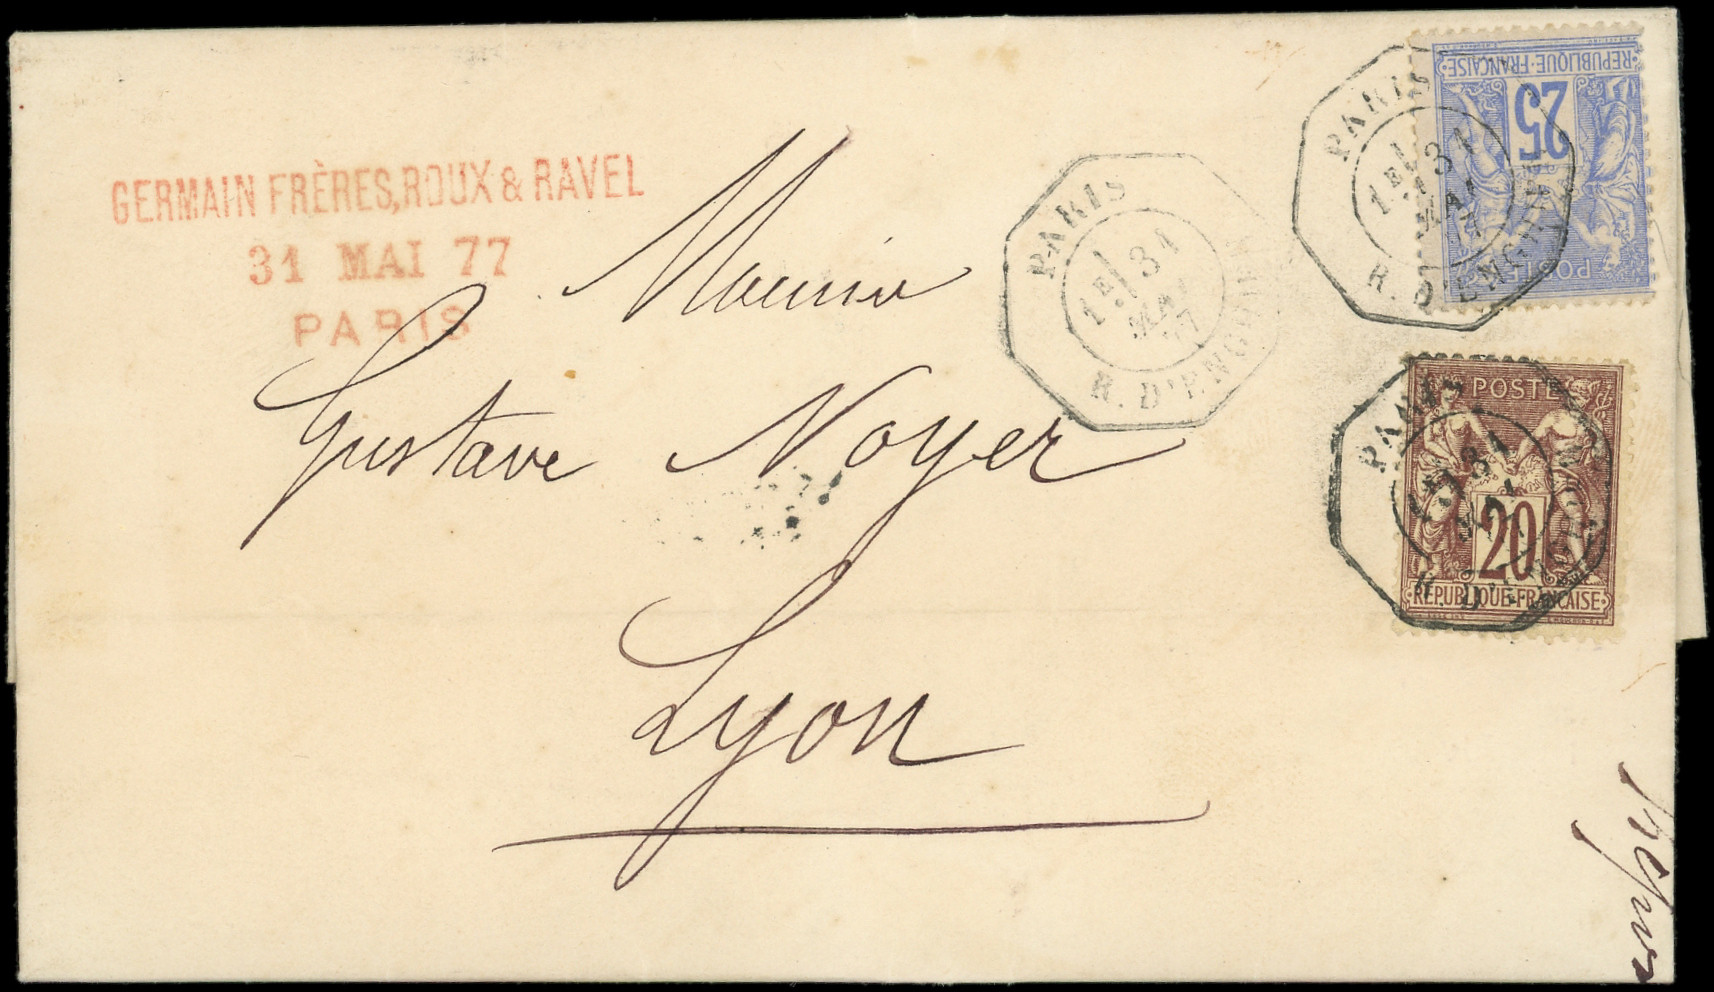 GERMAIN FRÈRES, ROUX & RAVEL
31 MAI 77
PARIS
Monsieur
Gustave Noyer
Lyon
PARIS
1E/ 31
MAI
77
R. D'ENGHIEN
REPUBLIQUE·FRANÇAISE
25
PARIS
1E/ 31
MAI
77
R. D'ENGHIEN
POSTE
20
REPUBLIQUE·FRANÇAISE
PARIS
31
MAI
R. D'ENGHIEN